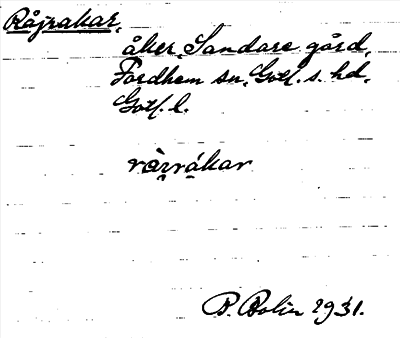 Råjrakar,
åker, Sandare gård,
Fordhem sn, Gotl. s. hd,
Gotl. l.
ràrrákar
P. Bolin 1931.